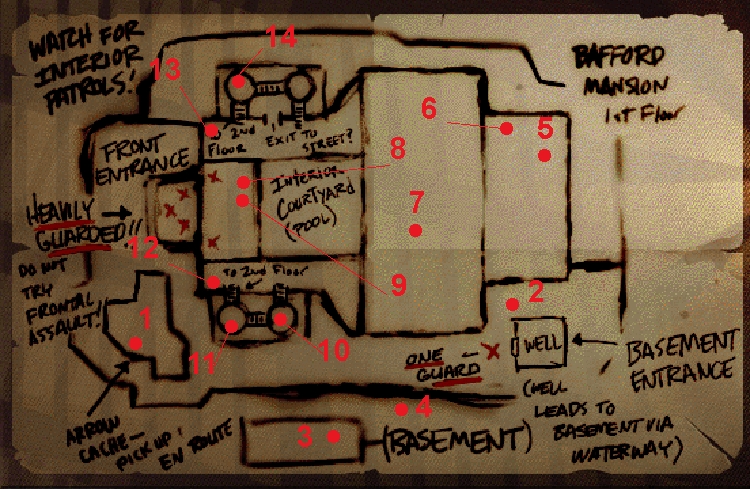 WATCH FOR
INTERIOR
PATROLS!
14
13
2nd
FLOOR
EXIT TO
STREET?
BAFFORD
MANSION
1st Floor
6
5
FRONT
ENTRANCE
8
INTERIOR
COURTYARD
(POOL)
7
HEAVILY
GUARDED!!
DO NOT
TRY
FRONTAL
ASSAULT!
12
TO 2nd FLOOR
9
1
2
11
10
ONE
GUARD
WELL
BASEMENT
ENTRANCE
(WELL
LEADS TO
BASEMENT VIA
WATERWAY)
ARROW
CACHE-
PICK UP!
EN ROUTE
3
4
(BASEMENT)